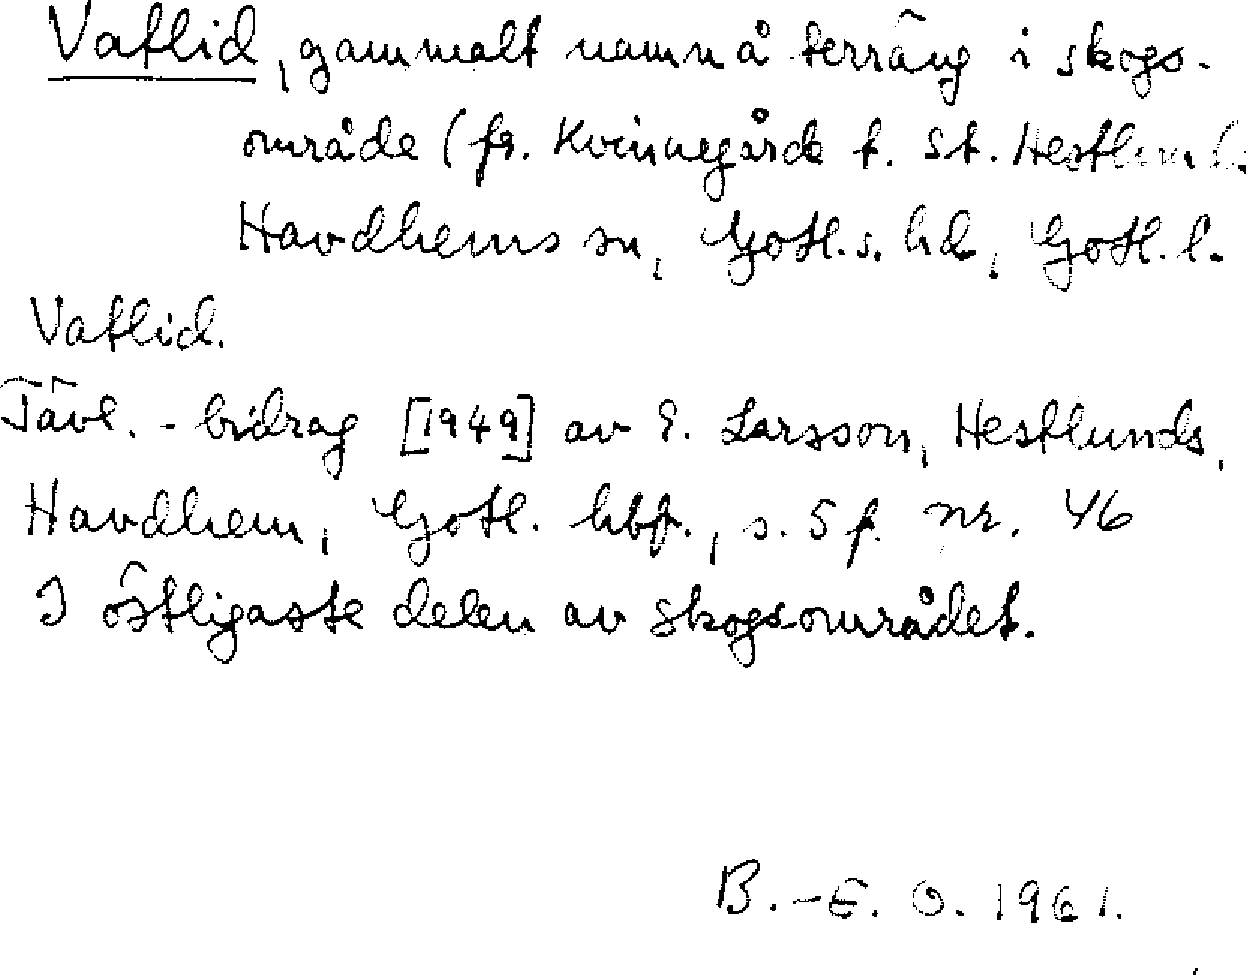 Vatlid, gammalt namn å terräng i skogs-
område (fr. Kvinnegårde t. St. Hestlunds
Havdhems sn, Gotl.s. hd, Gotl. l.
Vatlid.
Tävl. - bidrag [1949] av E. Larsson, Hestlunds,
Havdhem, Gotl. hbf., s. 5 f. nr. 46
I östligaste delen av skogsområdet.
B.-E. O. 1961.